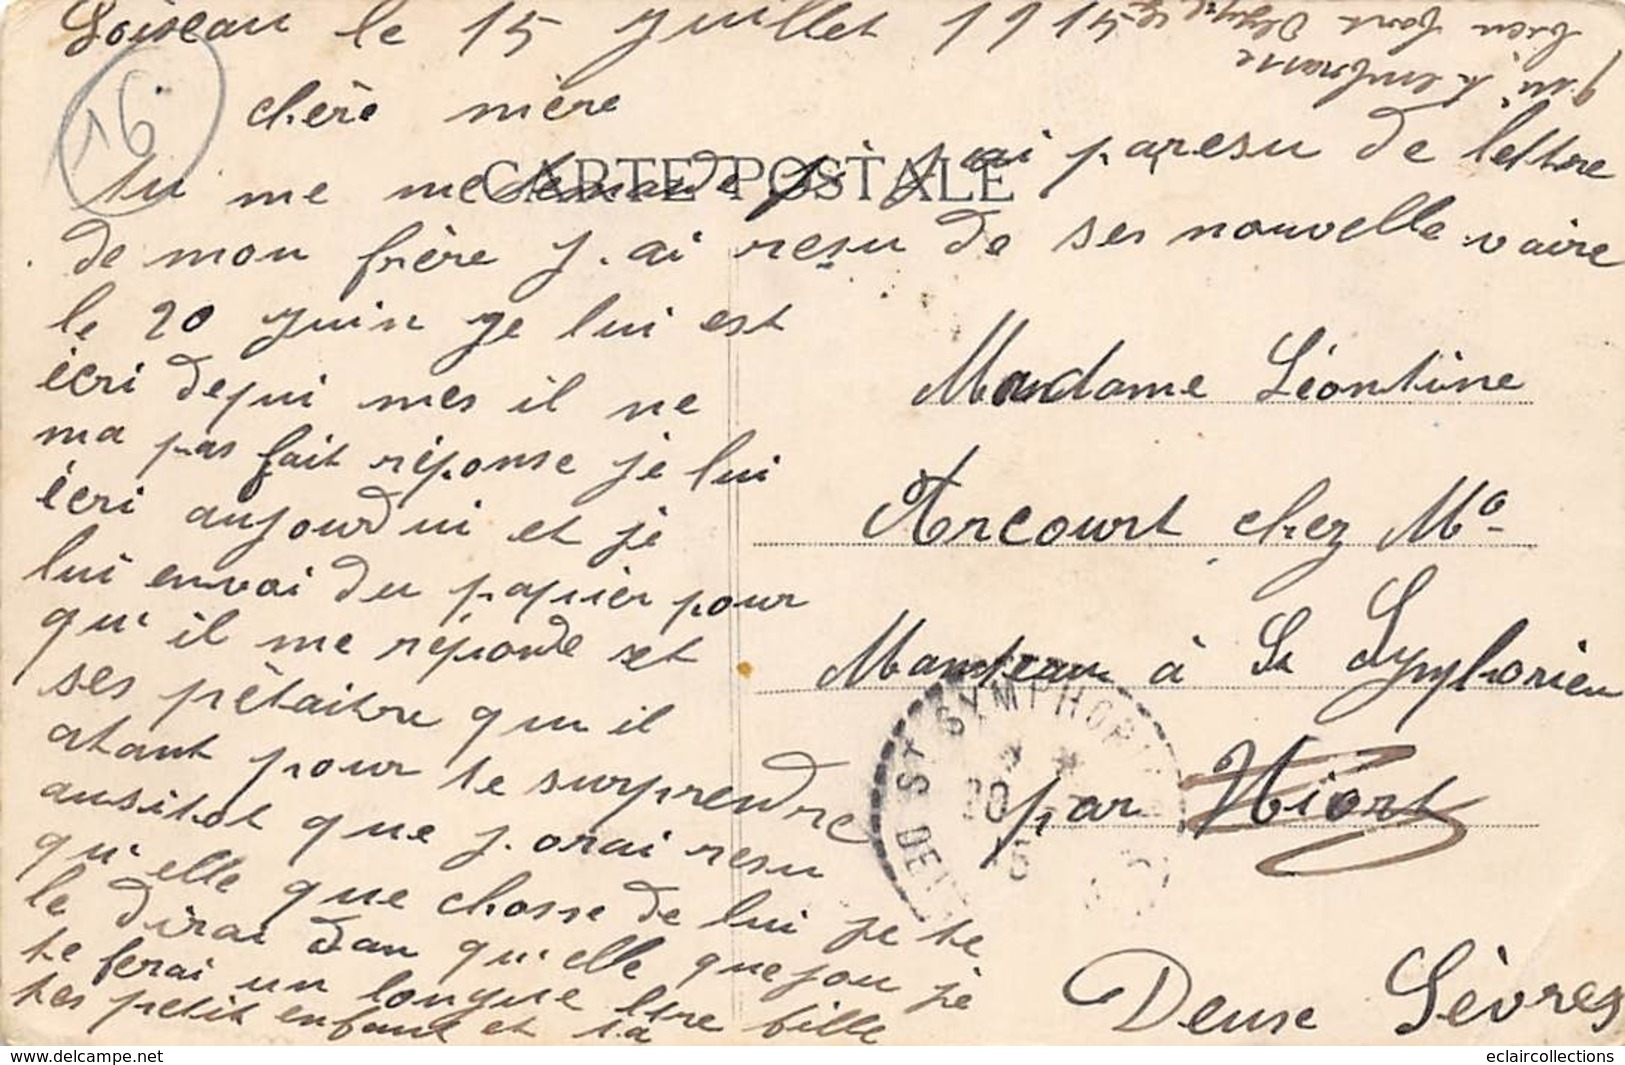 Loiseau le 15 Juillet 1915
16
CARTE POSTALE
chère mère
tu me me demande si j ai paresu de lettre
de mon frère J. ai resu de ses nouvelle vaire
le 20 Juin Je lui est
ècri depui mes il ne
ma pas fait rèponse je lui
ècri aujourdui et je
lui envoi du papier pour
qu'il me rèponde et
ses pètaitre qu il
atant pour te surprendre
ausitot que j. orai resu
qu'elle que chosse de lui je te
le dirai dan qu'elle que jou je
te ferai un longue ltre
tes petit enfant et ta fille
qui t embrasse
bien fort
Madame Léontine
Arcourt chez Mo
Manteau à St Symphorien
par Niort
Deuse Sèvres
ST SYMPHOR
20
15
DEU
eclaircollections